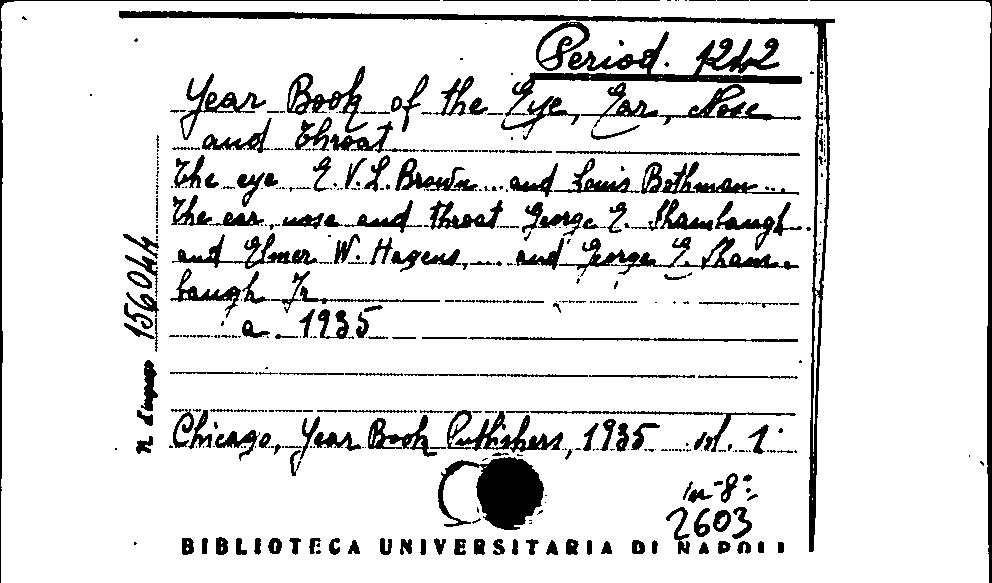 Period. 1242
Year Book of the Eye, Ear, Nose
and Throat.
The eye E.V.L. Brown... and Louis Bothman...
The ear, nose and throat George E. Shambaugh...
and Elmer W. Hagens, ... and George E. Sham-
baugh Jr.
a. 1935
Chicago, Year Book Publishers, 1935 vl. 1°
in-8°
2603
n. d'ingresso 156044
BIBLIOTECA UNIVERSITARIA DI NAPOLI